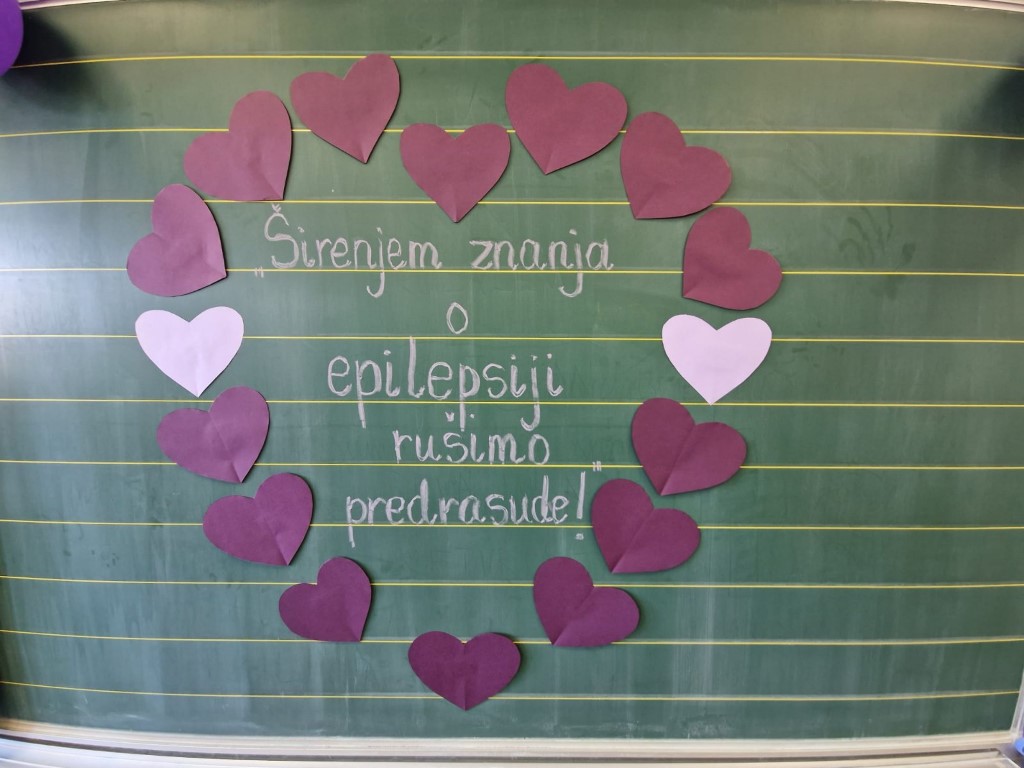 „Širenjem znanja
o
epilepsiji
rušimo
predrasude!"